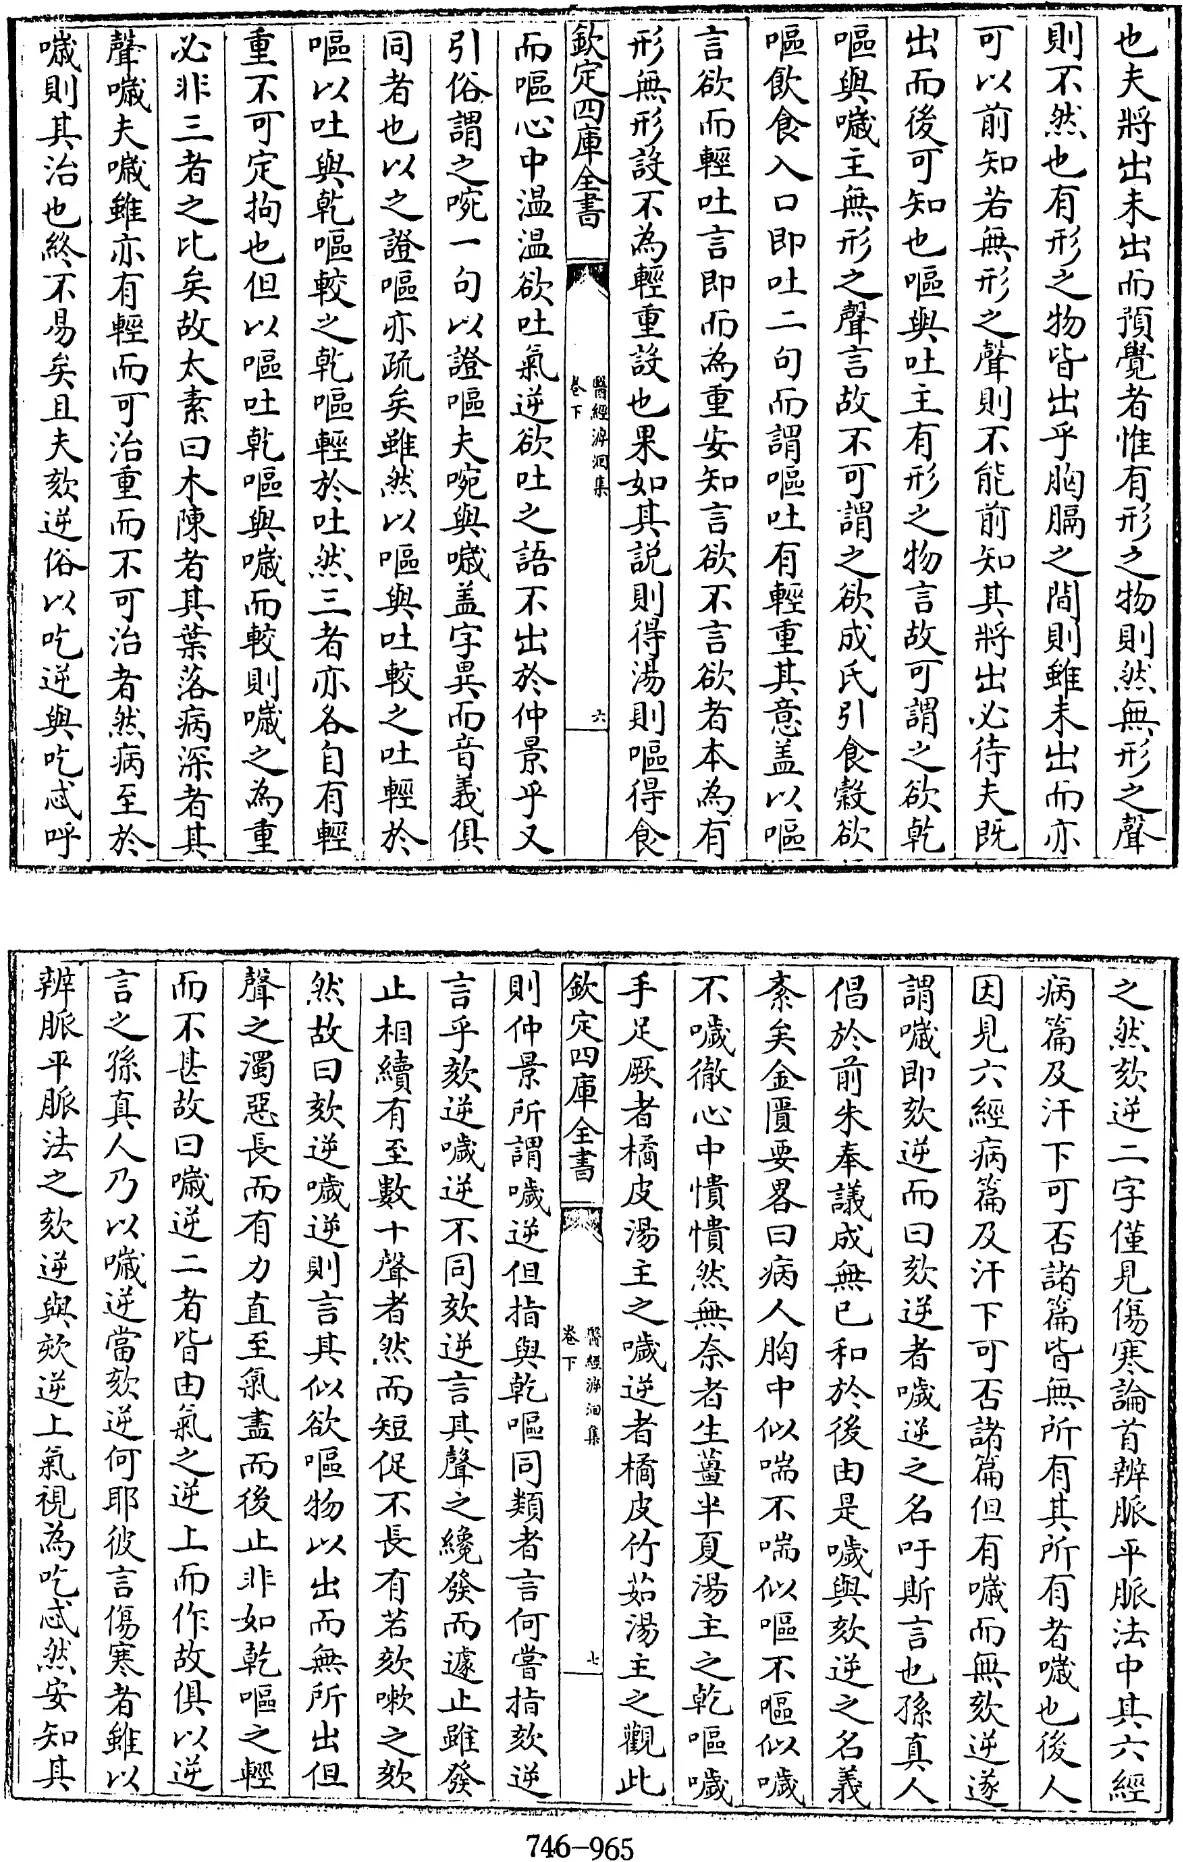 也夫將出未出而預覺者惟有形之物則然無形之聲
則不然也有形之物皆出乎胸膈之間則雖未出而亦
可以前知若無形之聲則不能前知其將出必待夫既
出而後可知也嘔與吐主有形之物言故可謂之欲乾
嘔與噦主無形之聲言故不可謂之欲成氏引食穀欲
嘔飲食入口即吐二句而謂嘔吐有輕重其意盖以嘔
言欲而輕吐言即而為重安知言欲不言欲者本為有
形無形設不為輕重設也果如其説則得湯則嘔得食
欽定四庫全書
醫經溯洄集
卷下
六
而嘔心中温温欲吐氣逆欲吐之語不出於仲景乎又
引俗謂之啘一句以證嘔夫啘與噦盖字異而音義俱
同者也以之證嘔亦疏矣雖然以嘔與吐較之吐輕於
嘔以吐與乾嘔較之乾嘔輕於吐然三者亦各自有輕
重不可定拘也但以嘔吐乾嘔與噦而較則噦之為重
必非三者之比矣故太素曰木陳者其葉落病深者其
聲噦夫噦雖亦有輕而可治重而不可治者然病至於
噦則其治也終不易矣且夫欬逆俗以吃逆與吃忒呼
之然欬逆二字僅見傷寒論首辨脈平脈法中其六經
病篇及汗下可否諸篇皆無所有其所有者噦也後人
因見六經病篇及汗下可否諸篇但有噦而無欬逆遂
謂噦即欬逆而曰欬逆者噦逆之名吁斯言也孫真人
倡於前朱奉議成無已和於後由是噦與欬逆之名義
紊矣金匱要畧曰病人胸中似喘不喘似嘔不嘔似噦
不噦徹心中憒憒然無奈者生薑半夏湯主之乾嘔噦
手足厥者橘皮湯主之噦逆者橘皮竹茹湯主之觀此
欽定四庫全書
醫經溯洄集
卷下
七
則仲景所謂噦逆但指與乾嘔同類者言何嘗指欬逆
言乎欬逆噦逆不同欬逆言其聲之纔發而遽止雖發
止相續有至數十聲者然而短促不長有若欬嗽之欬
然故曰欬逆噦逆則言其似欲嘔物以出而無所出但
聲之濁惡長而有力直至氣盡而後止非如乾嘔之輕
而不甚故曰噦逆二者皆由氣之逆上而作故俱以逆
言之孫真人乃以噦逆當欬逆何耶彼言傷寒者雖以
辨脈平脈法之欬逆與欬逆上氣視為吃忒然安知其
746-965